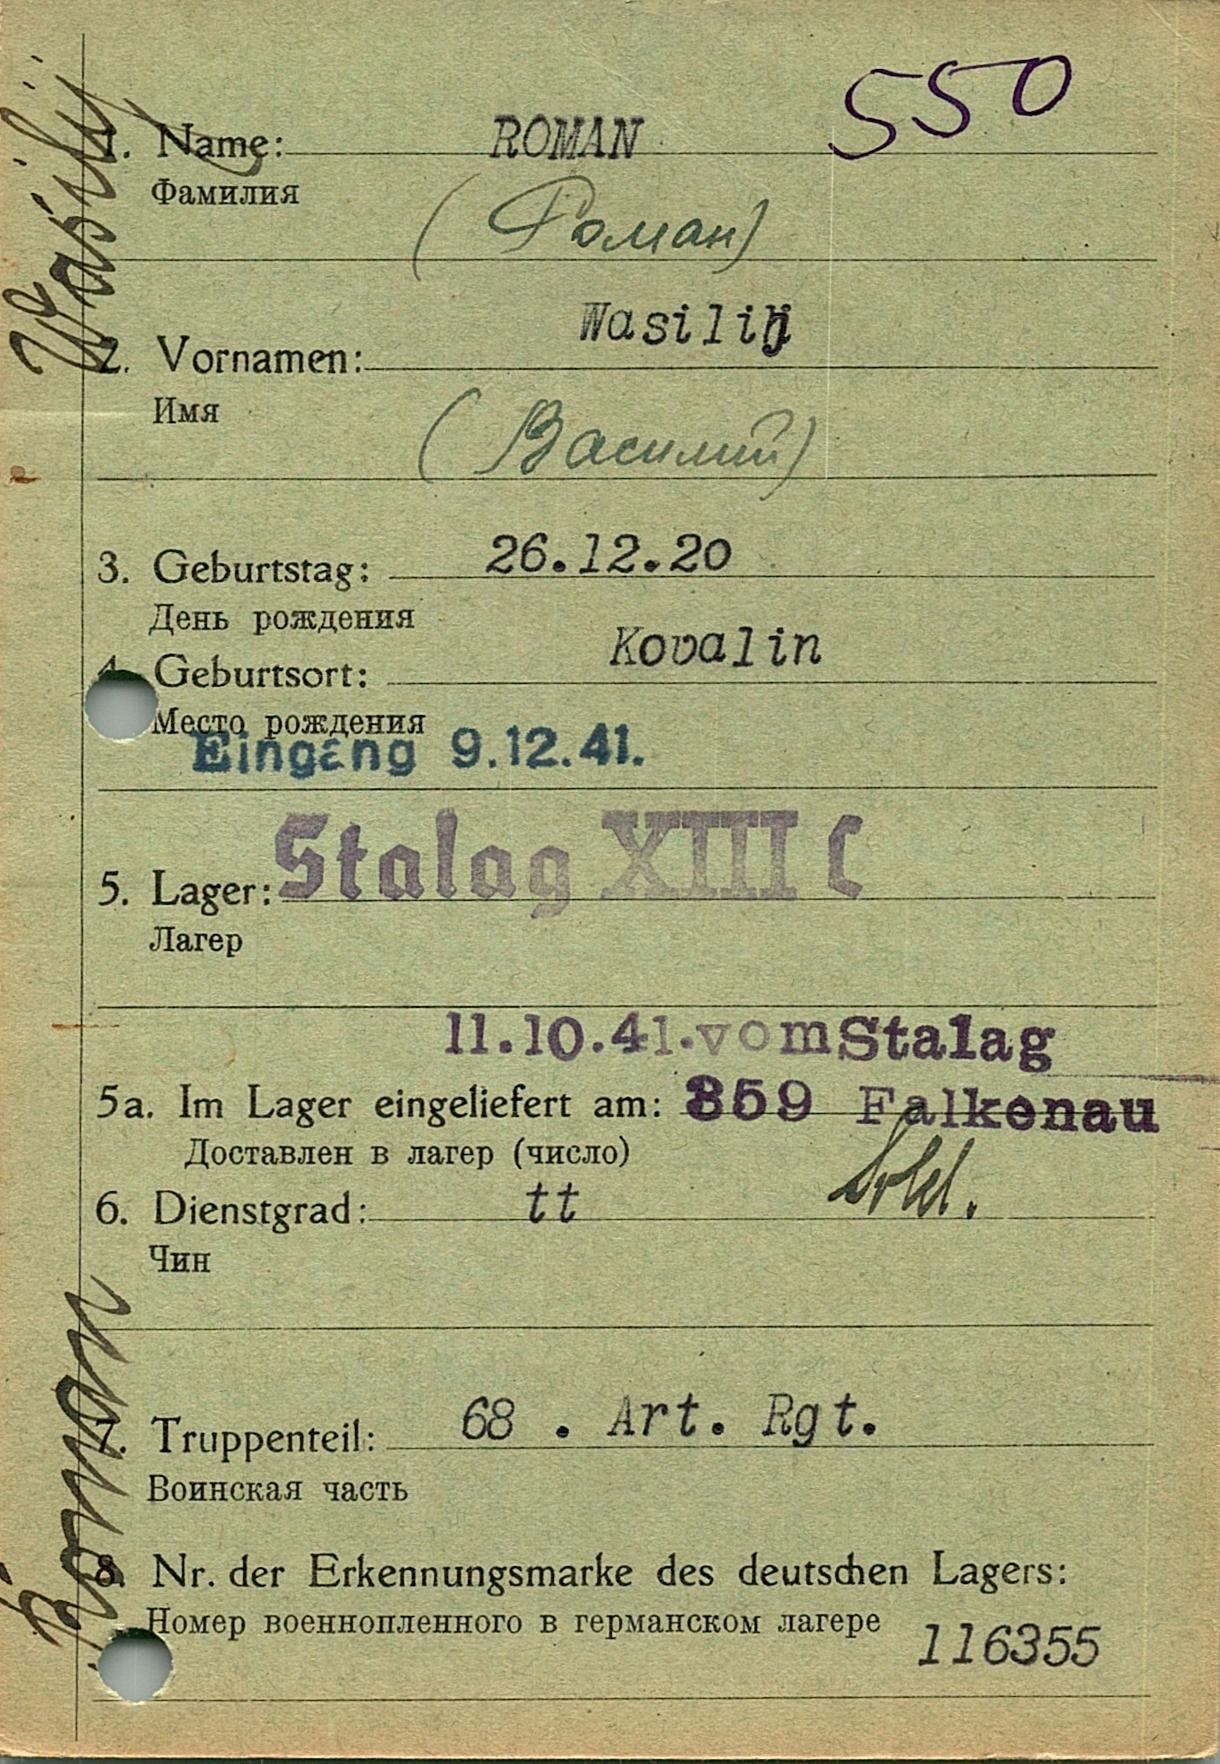 550
1. Name: ROMAN
Фамилия
(Роман)
Wasilij
2. Vornamen:
Имя
(Василий)
3. Geburtstag: 26.12.20
День рождения
Kovalin
4. Geburtsort:
Место рождения
Eingang 9.12.41.
Stalag XIII C
5. Lager:
Лагер
11.10.41. vom Stalag
5a. Im Lager eingeliefert am: 359 Falkenau
Доставлен в лагер (число)
6. Dienstgrad: tt Sold.
Чин
7. Truppenteil: 68 . Art. Rgt.
Воинская часть
8. Nr. der Erkennungsmarke des deutschen Lagers:
Номер военнопленного в германском лагере
116355
Roman Wasilij